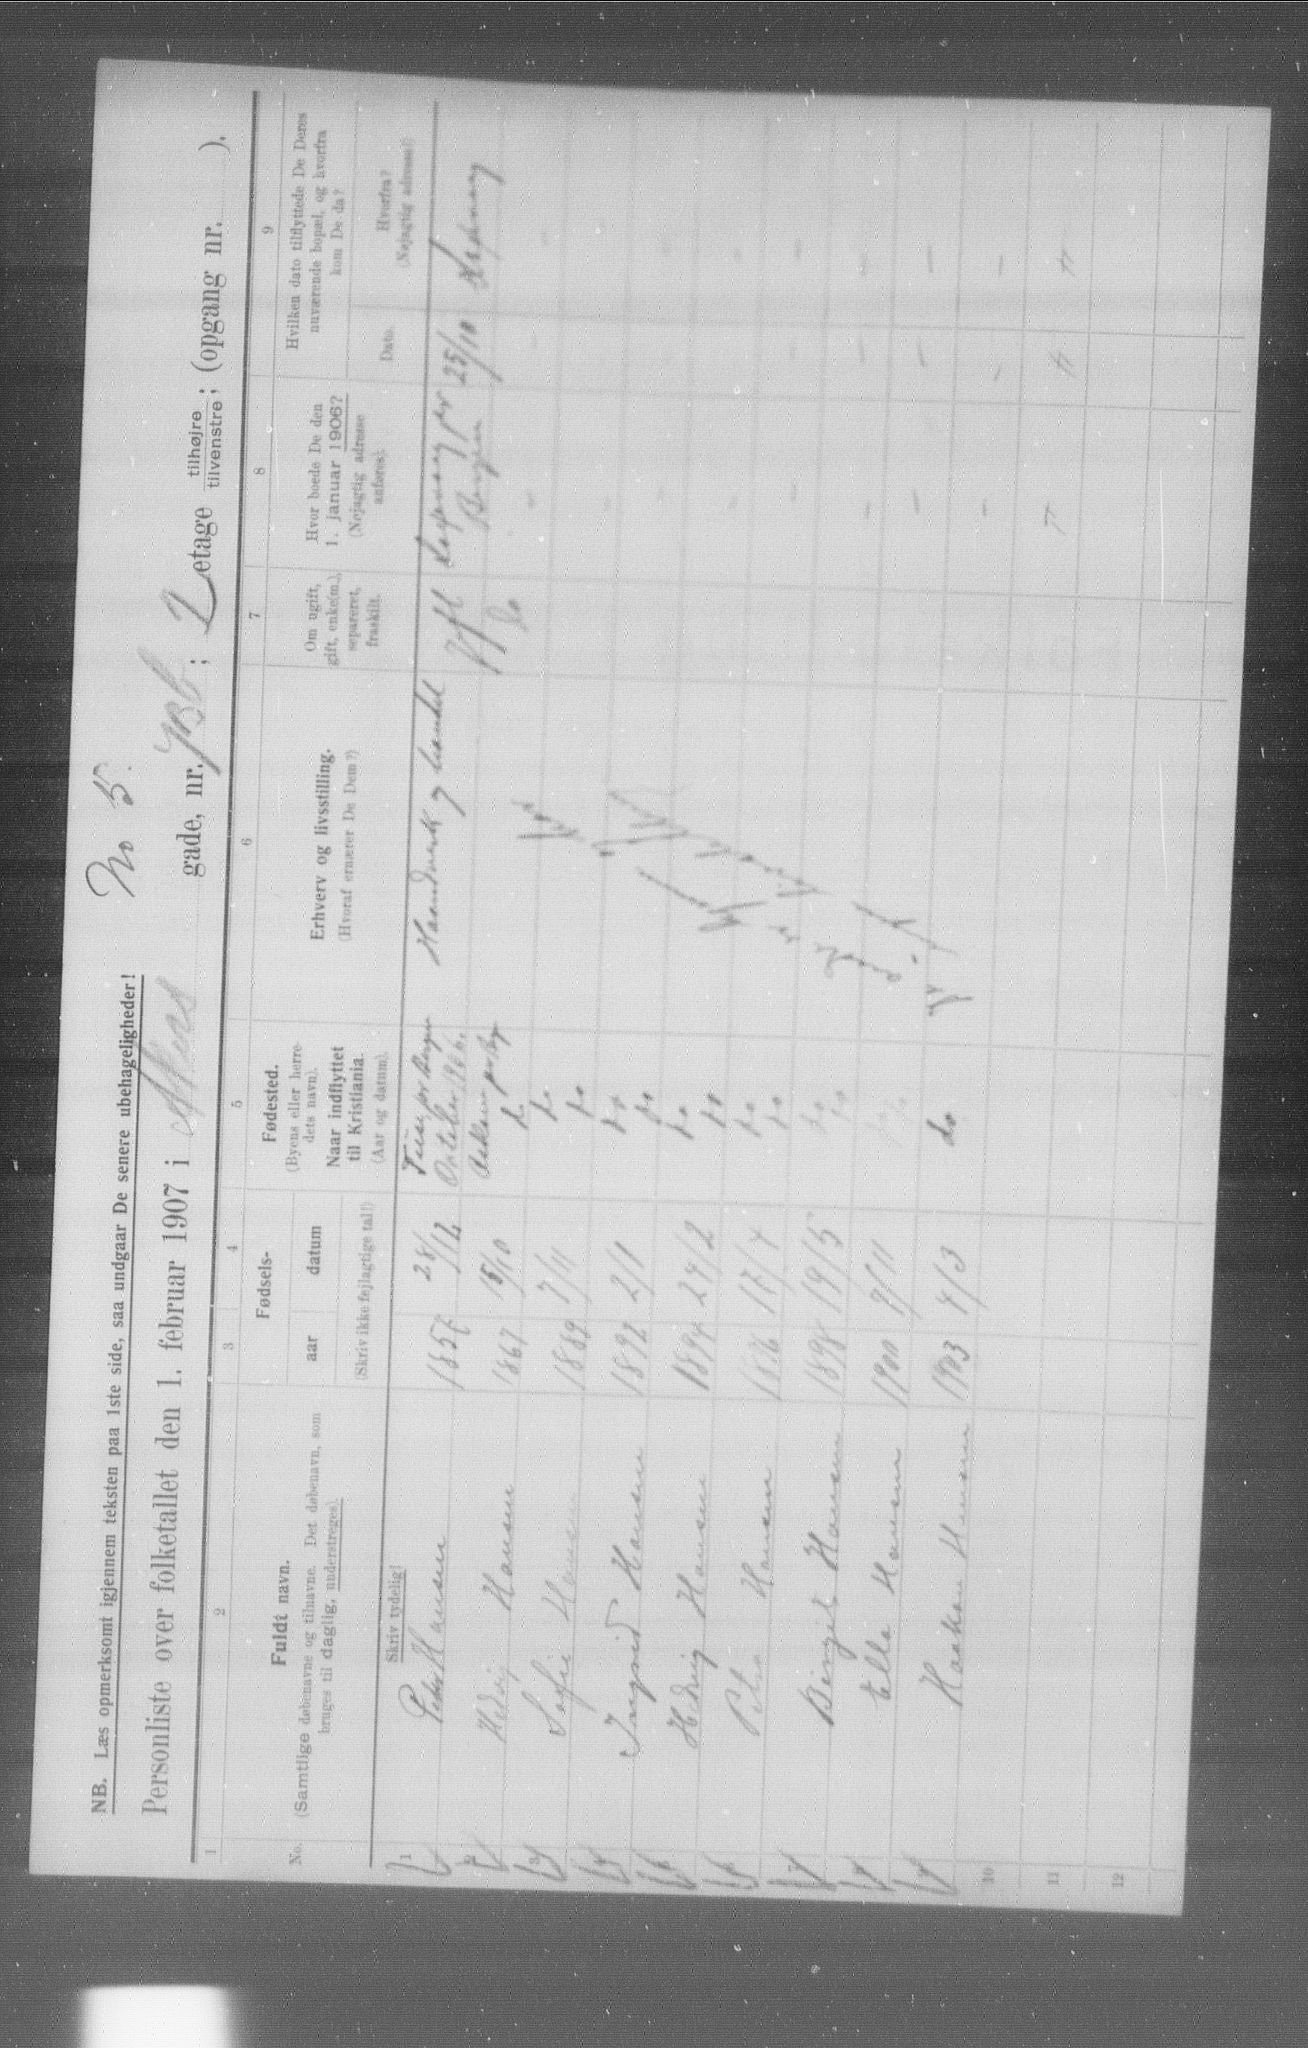 No 5.
NB. Læs opmerksomt igjennem teksten paa 1ste side, saa undgaar De senere ubehageligheder!
Personliste over folketallet den 1. februar 1907 i gade, nr. ; 2 etage tilhøjre tilvenstre ; (opgang nr. ).
1 2 3 4 5 6 7 8 9
No.
Fuldt navn.
(Samtlige døbenavne og tilnavne. Det døbenavn, som
bruges til daglig, understreges).
Skriv tydelig!
Fødsels-
aar datum
(Skriv ikke fejlagtige tal!)
Fødested.
(Byens eller herre-
dets navn).
Naar indflyttet
til Kristiania.
(Aar og datum).
Erhverv og livsstilling.
(Hvoraf ernærer De Dem?)
Om ugift,
gift, enke(m.),
separeret,
fraskilt.
Hvor boede De den
1. januar 1906?
(Nøjagtig adresse
anføres).
Hvilken dato tilflyttede De Deres
nuværende bopæl, og hvorfra
kom De da?
Dato.
Hvorfra?
(Nøjagtig adresse!)
1 Peder Hansen 28/12 Haandverk og handel Gift 25/10
2 Hedvig Hansen 1867 15/10 do
3 Sofie Hansen 1889 7/11 do
4 Ingrid Hansen 1892 2/1 do
5 Hedvig Hansen 1894 24/2 do
6 Petra Hansen 1896 17/4 do
7 Bergit Hansen 1898 19/5 do
8 Ella Hansen 1900 9/11 do
9 Haakon Hansen 1903 4/3 do
10
11
12